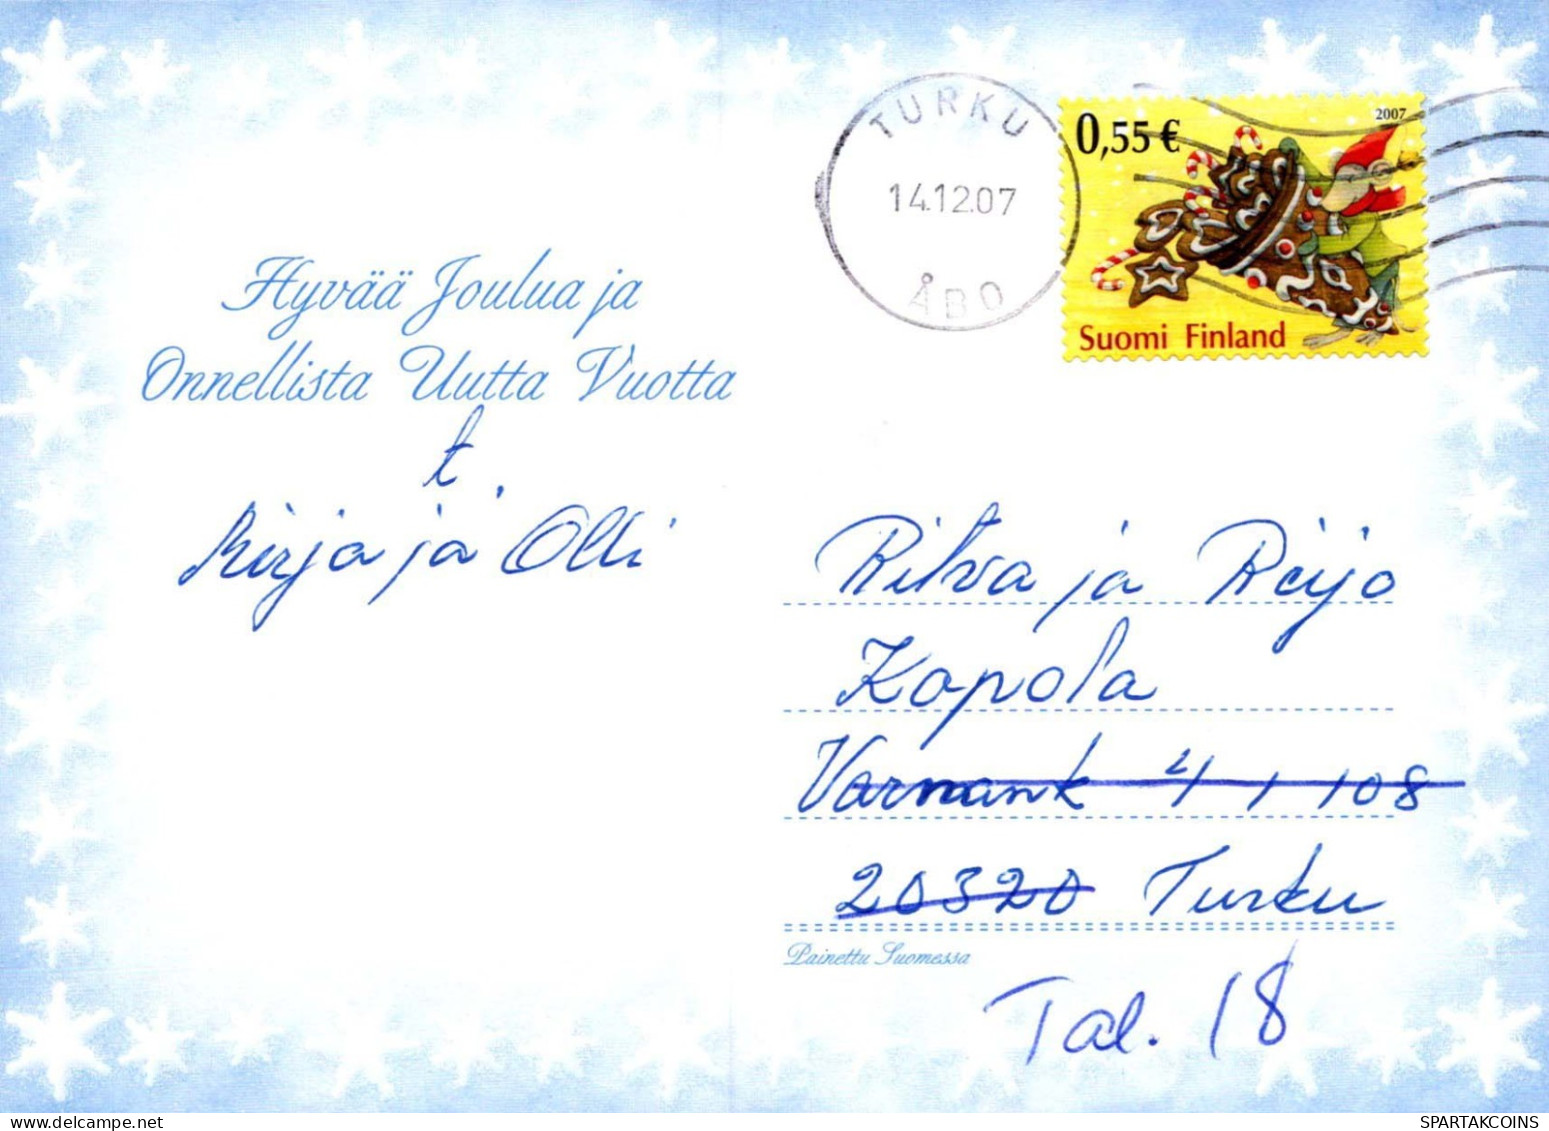 TURKU
14.12.07
ÅBO
0,55 €
2007
Suomi Finland
Hyvää Joulua ja
Onnellista Uutta Vuotta
t.
Mirja ja Olli
Ritva ja Reijo
Kopola
Varnank 4 1 108
20320 Turku
Painettu Suomessa
Tal. 18
SPARTAKCOINS